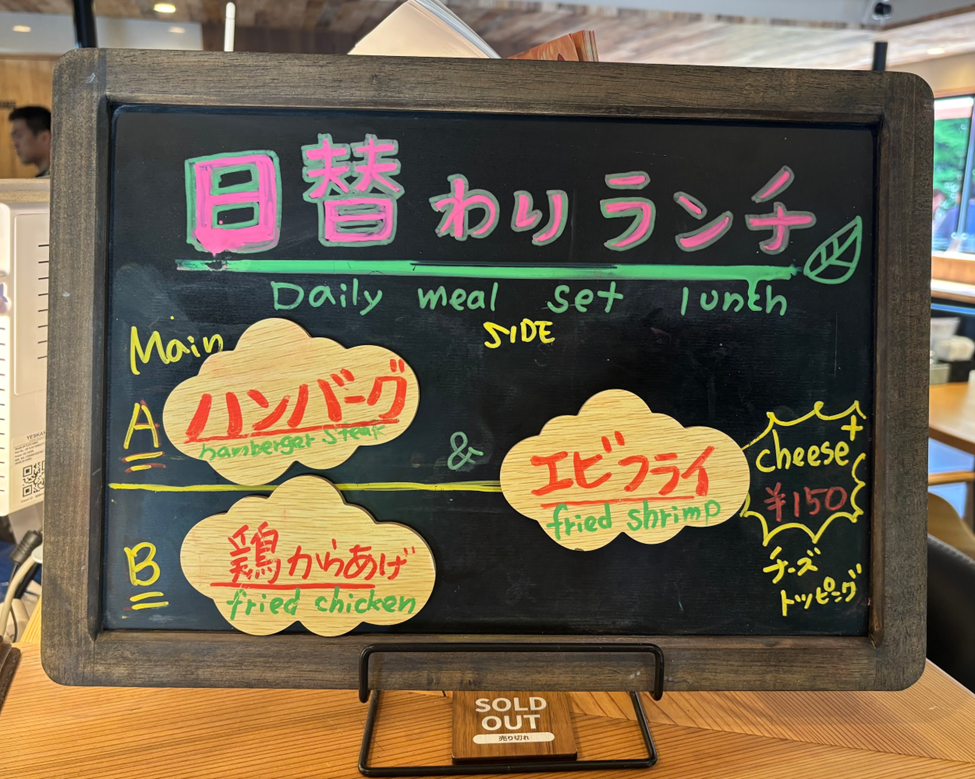 日替わりランチ
Daily meal set lunth
Main
SIDE
A
ハンバーグ
hamberger steak
&
エビフライ
fried shrimp
cheese+
¥150
チーズ
トッピング
B
鶏からあげ
fried chicken
SOLD
OUT
売り切れ